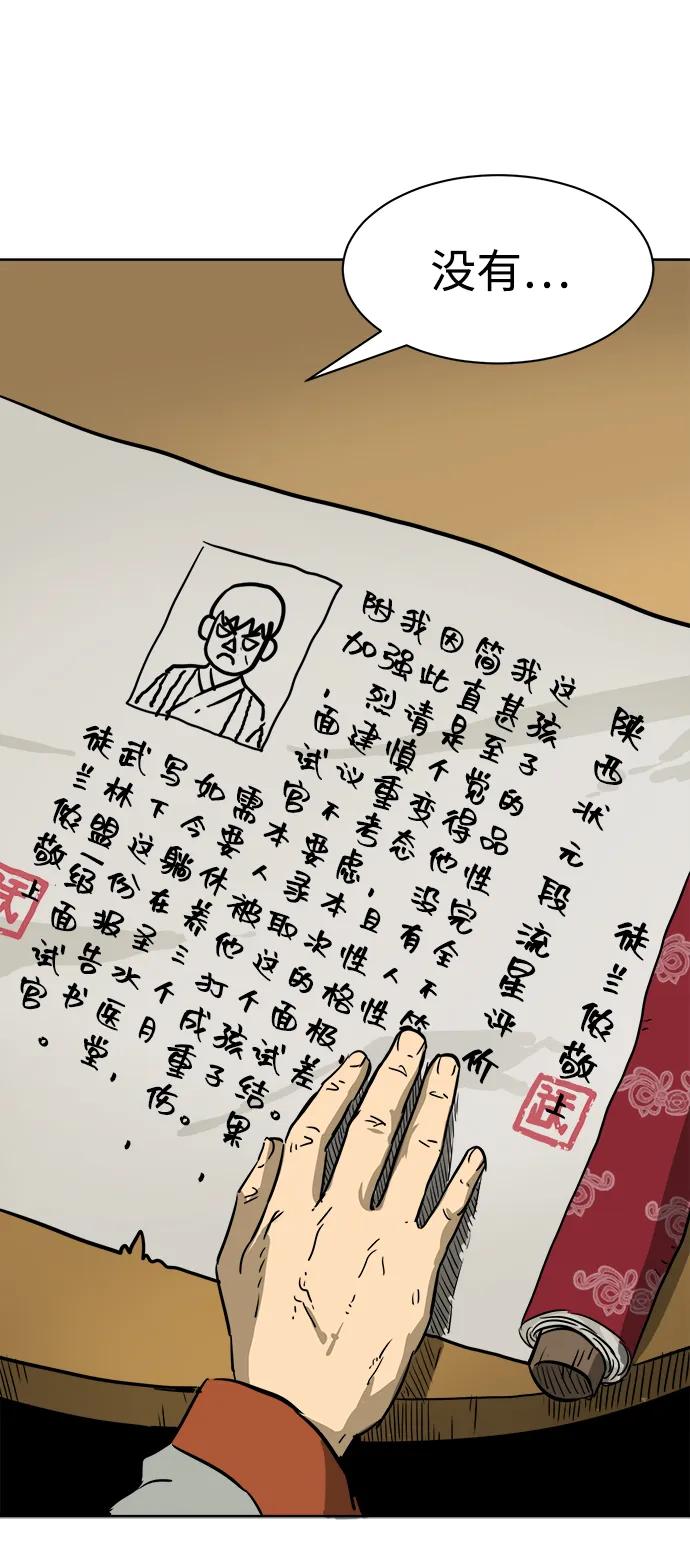 没有...
陕西状元段流星评价
徒兰倧敬上
这孩子的品性完全不
我甚至觉得他没有人性
简直是个变态且性格极差,
因此请慎重考虑,本次的面试结果。
我强烈建议不要录取这个孩子。
附加,面试官本人被他打成重伤,
需要休养三个月,
如今躺在圣水医堂,
写下这份报告书。
武林盟一级面试官
徒兰倧敬上